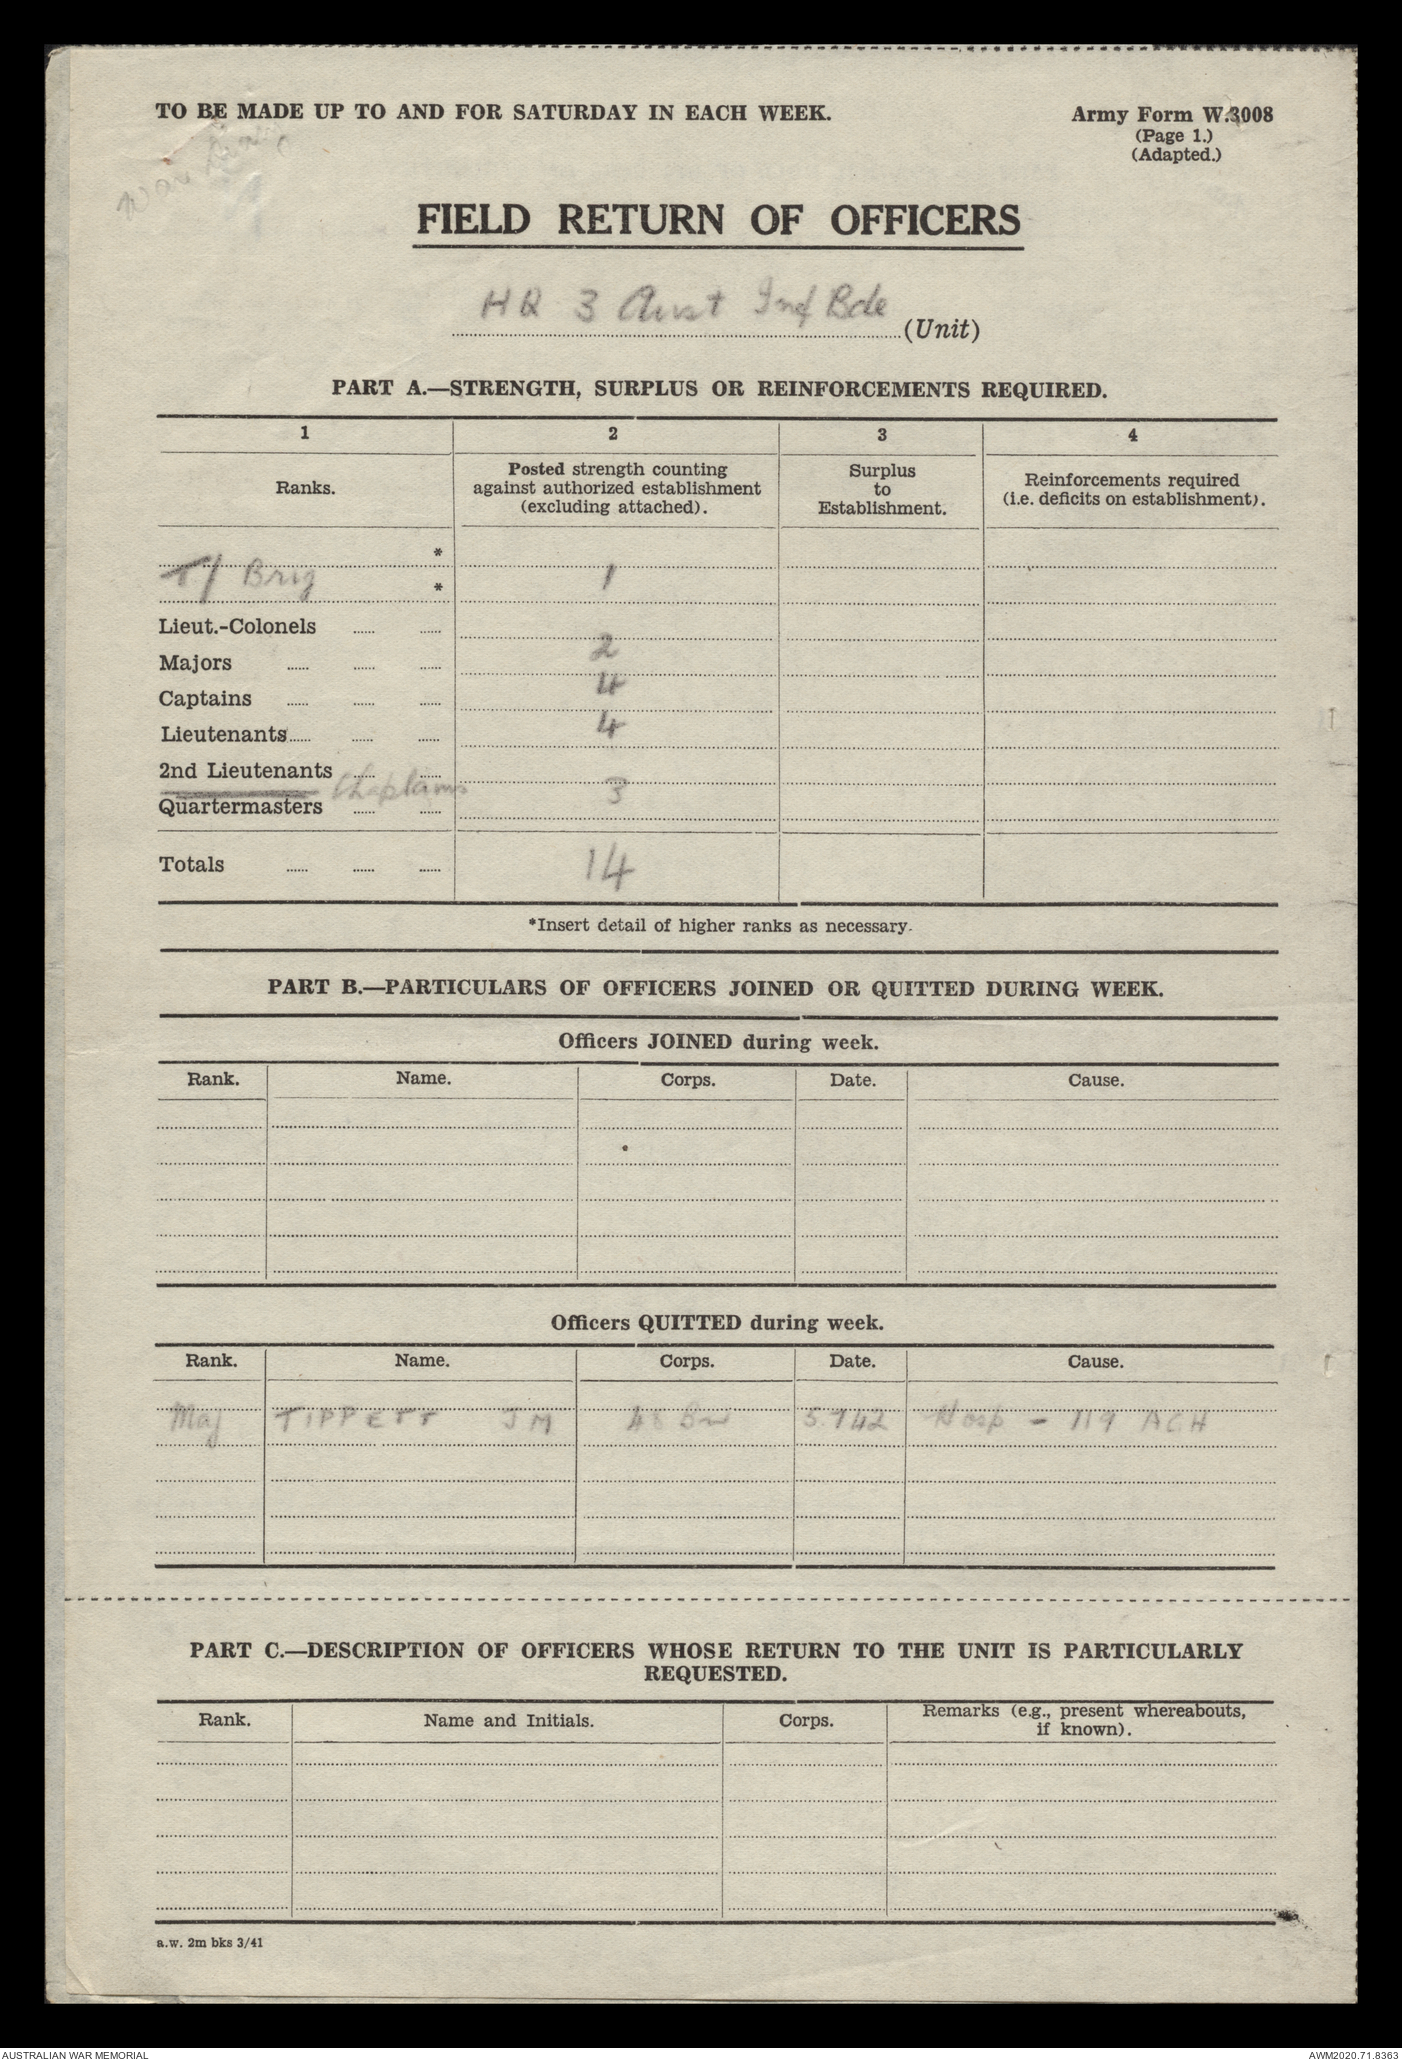 TO BE MADE UP TO AND FOR SATURDAY IN EACH WEEK.
Army Form W.3008
(Page 1.)
(Adapted.)
War Diary
FIELD RETURN OF OFFICERS
HQ 3 Aust Inf Bde (Unit)
PART A.—STRENGTH, SURPLUS OR REINFORCEMENTS REQUIRED.
1 2 3 4
Ranks. Posted strength counting against authorized establishment (excluding attached). Surplus to Establishment. Reinforcements required (i.e. deficits on establishment).
*
T/ Brig * 1
Lieut.-Colonels ...... ......
Majors ...... ...... ...... 2
Captains ...... ...... ...... 4
Lieutenants ...... ...... ...... 4
2nd Lieutenants ...... ......
Quartermasters Chaplains ...... ...... 3
Totals ...... ...... ...... 14
*Insert detail of higher ranks as necessary.
PART B.—PARTICULARS OF OFFICERS JOINED OR QUITTED DURING WEEK.
Officers JOINED during week.
Rank. Name. Corps. Date. Cause.
Officers QUITTED during week.
Rank. Name. Corps. Date. Cause.
Maj TIPPETT J M 48 Bn 5.7.42 Hosp - 119 AGH
PART C.—DESCRIPTION OF OFFICERS WHOSE RETURN TO THE UNIT IS PARTICULARLY
REQUESTED.
Rank. Name and Initials. Corps. Remarks (e.g., present whereabouts, if known).
a.w. 2m bks 3/41
AUSTRALIAN WAR MEMORIAL
AWM2020.71.8363